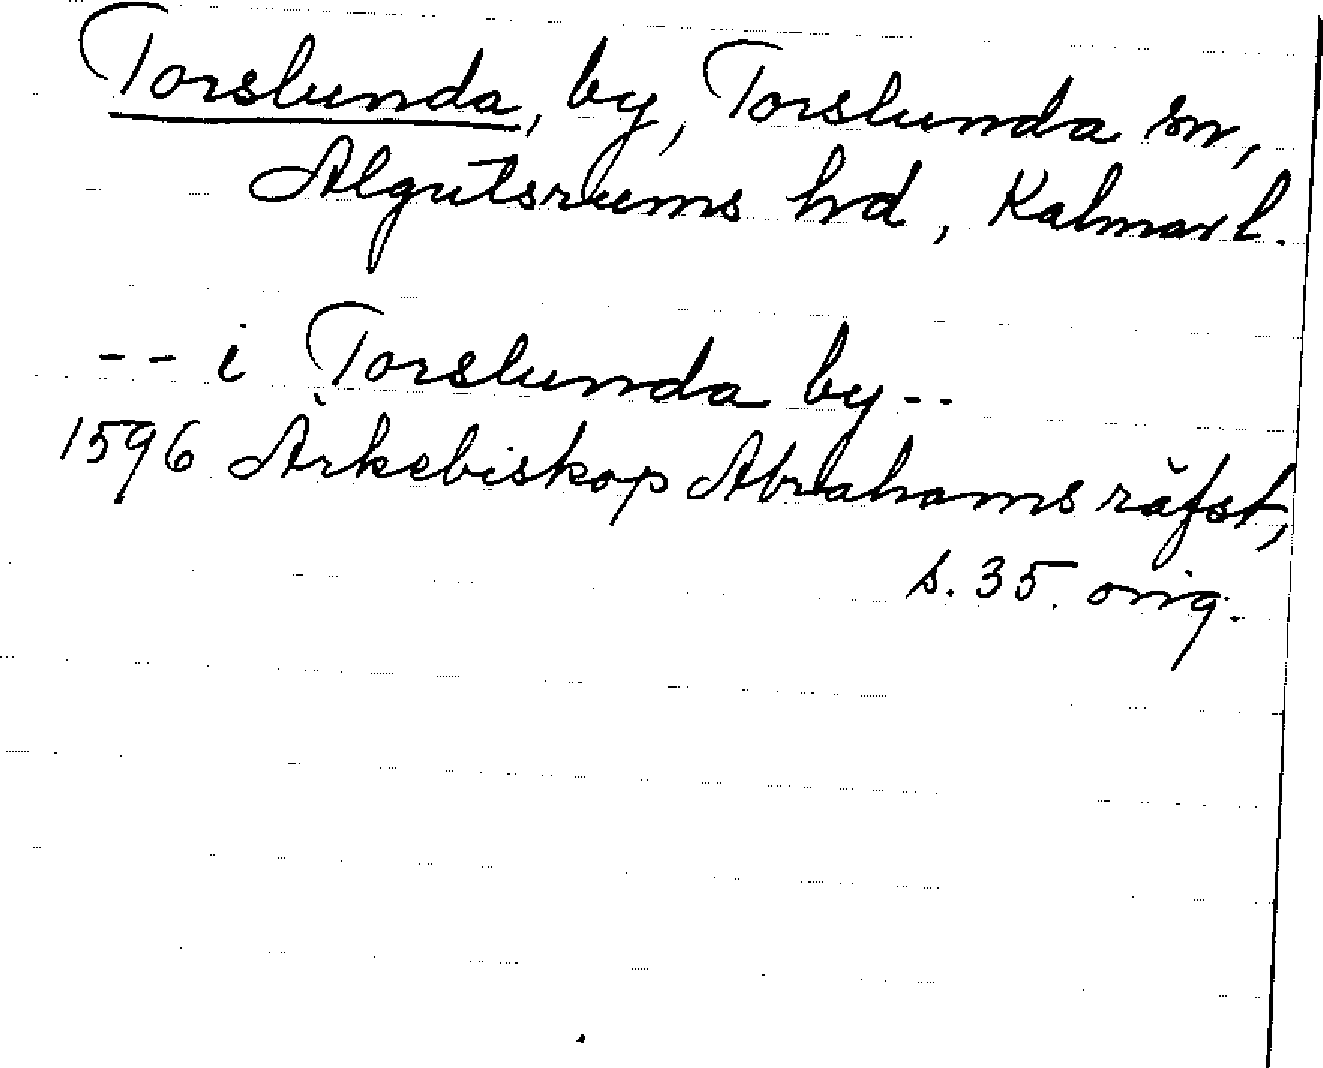 Torslunda, by, Torslunda sn,
Algutsrums hd, Kalmar l.
-- i Torslunda by --
1596 Ärkebiskop Abrahams räfst,
s. 35. orig.